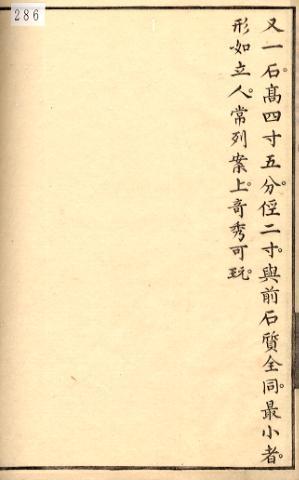 286
又一石。高四寸五分。徑二寸。與前石質全同。最小者。
形如立人。常列案上。奇秀可玩。